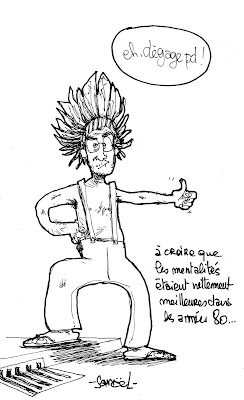 eh, dégage pd !
à croire que
les mentalités
étaient nettement
meilleures dans
les années 80...